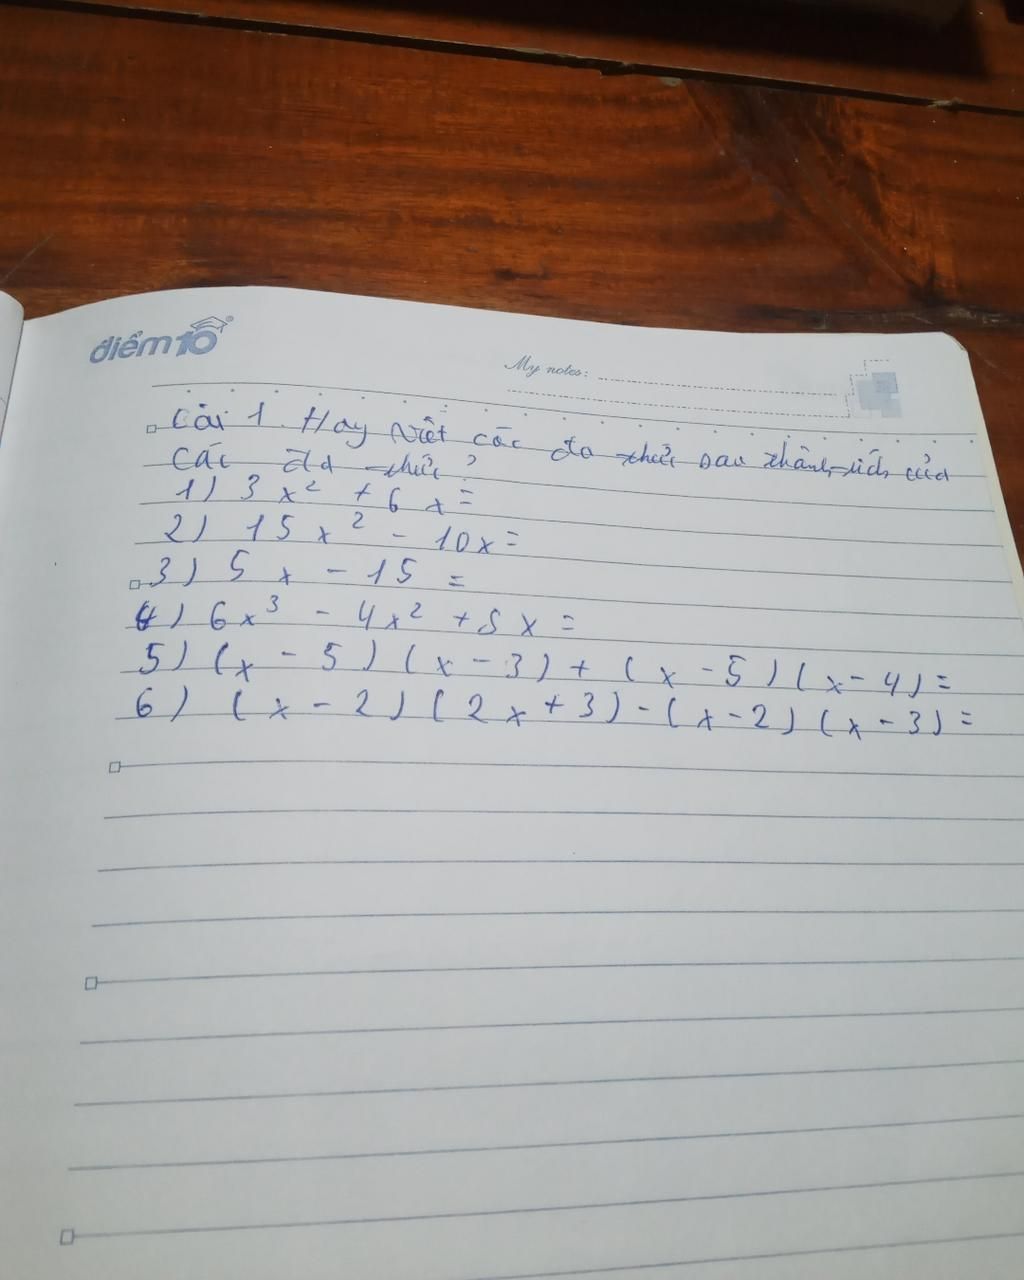 điểm10
My notes:
Câi 1. Hay viết các đa thức sau thành tích của
các đa thức?
1) 3x² + 6x =
2) 15x² - 10x =
3) 5x - 15 =
4) 6x³ - 4x² + 8x =
5) (x - 5)(x - 3) + (x - 5)(x - 4) =
6) (x - 2)(2x + 3) - (x - 2)(x - 3) =